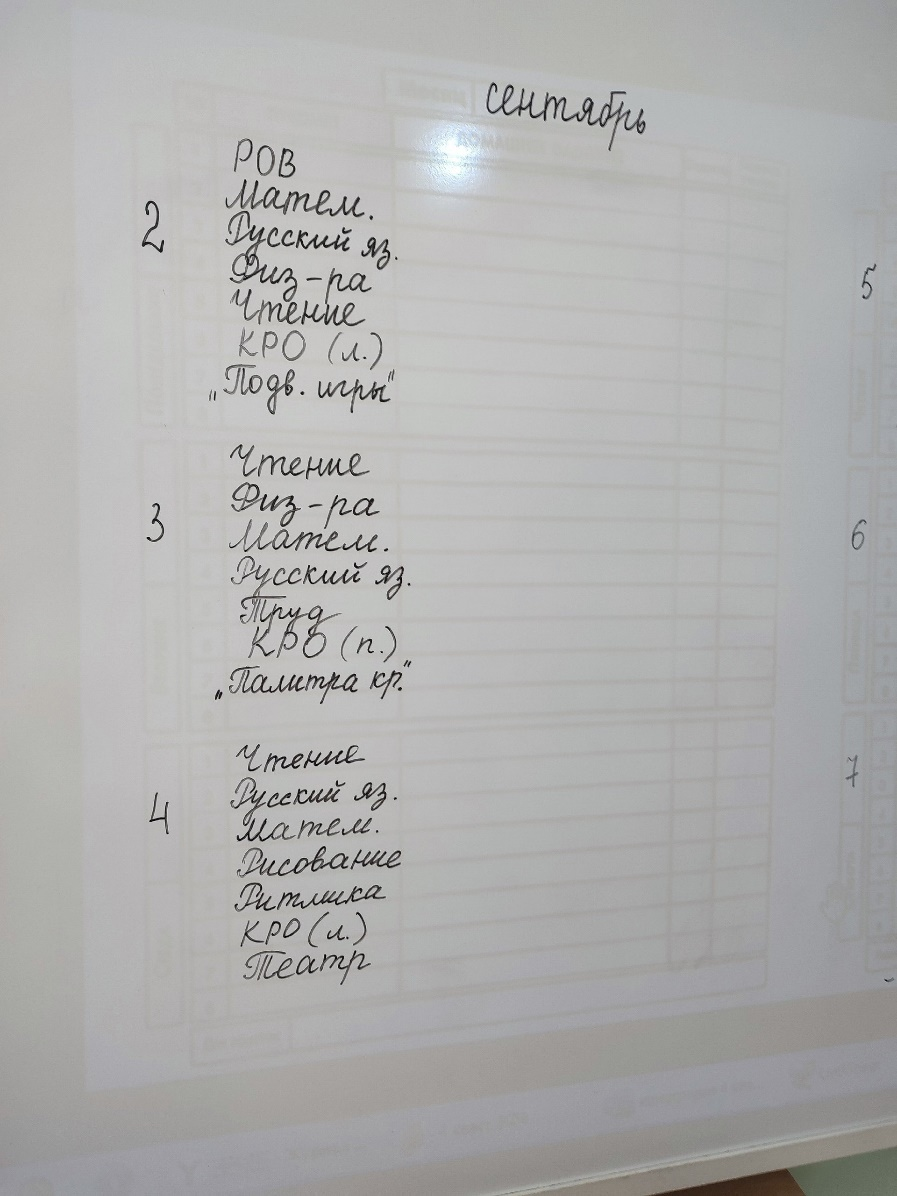 сентябрь
2
РОВ
Матем.
Русский яз.
Физ-ра
Чтение
КРО (л.)
„Подв. игры"
3
Чтение
Физ-ра
Матем.
Русский яз.
Труд
КРО (п.)
„Палитра кр."
4
Чтение
Русский яз.
Матем.
Рисование
Ритмика
КРО (л.)
Театр
5
6
7